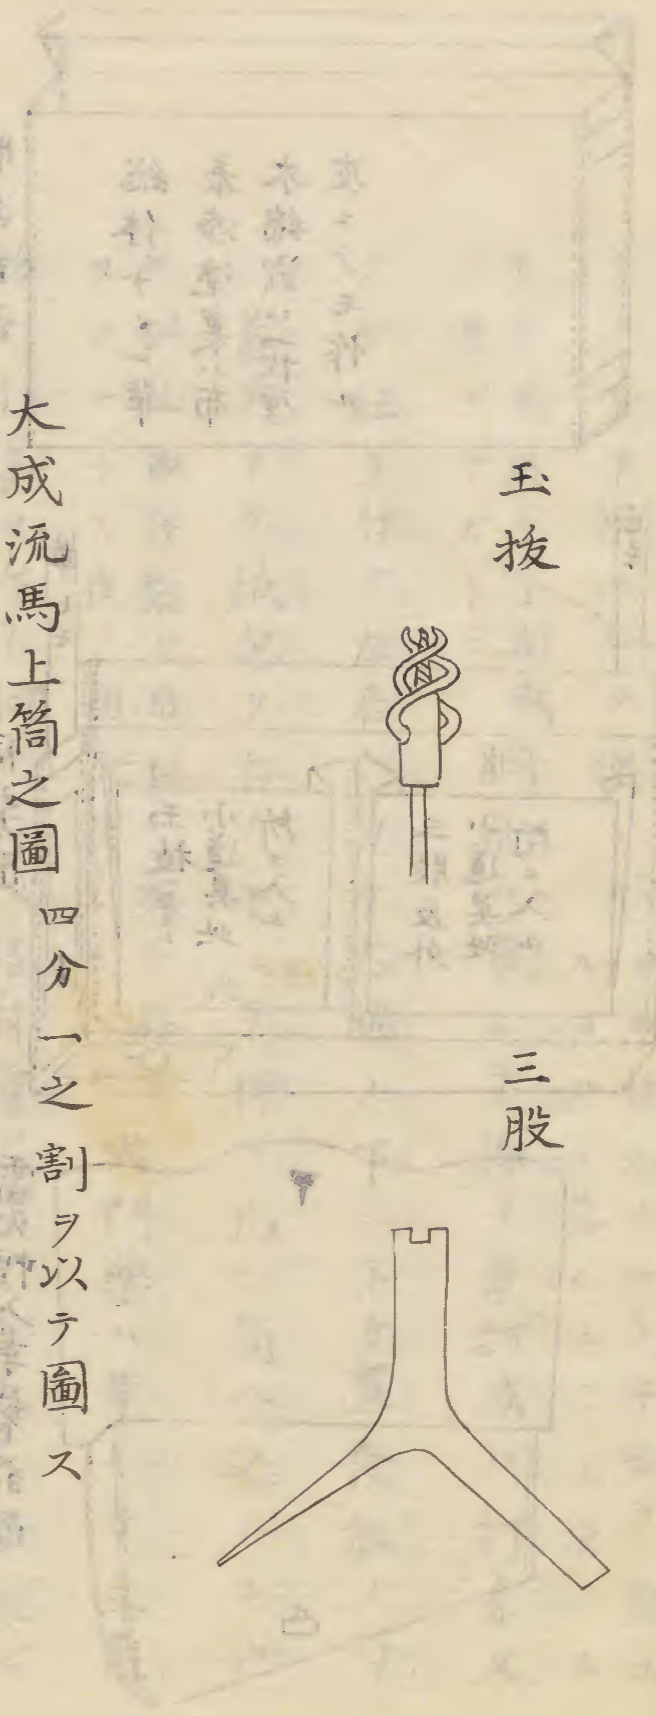 玉抜
三股
大成流馬上筒之圖
四分一之割ヲ以テ圖ス